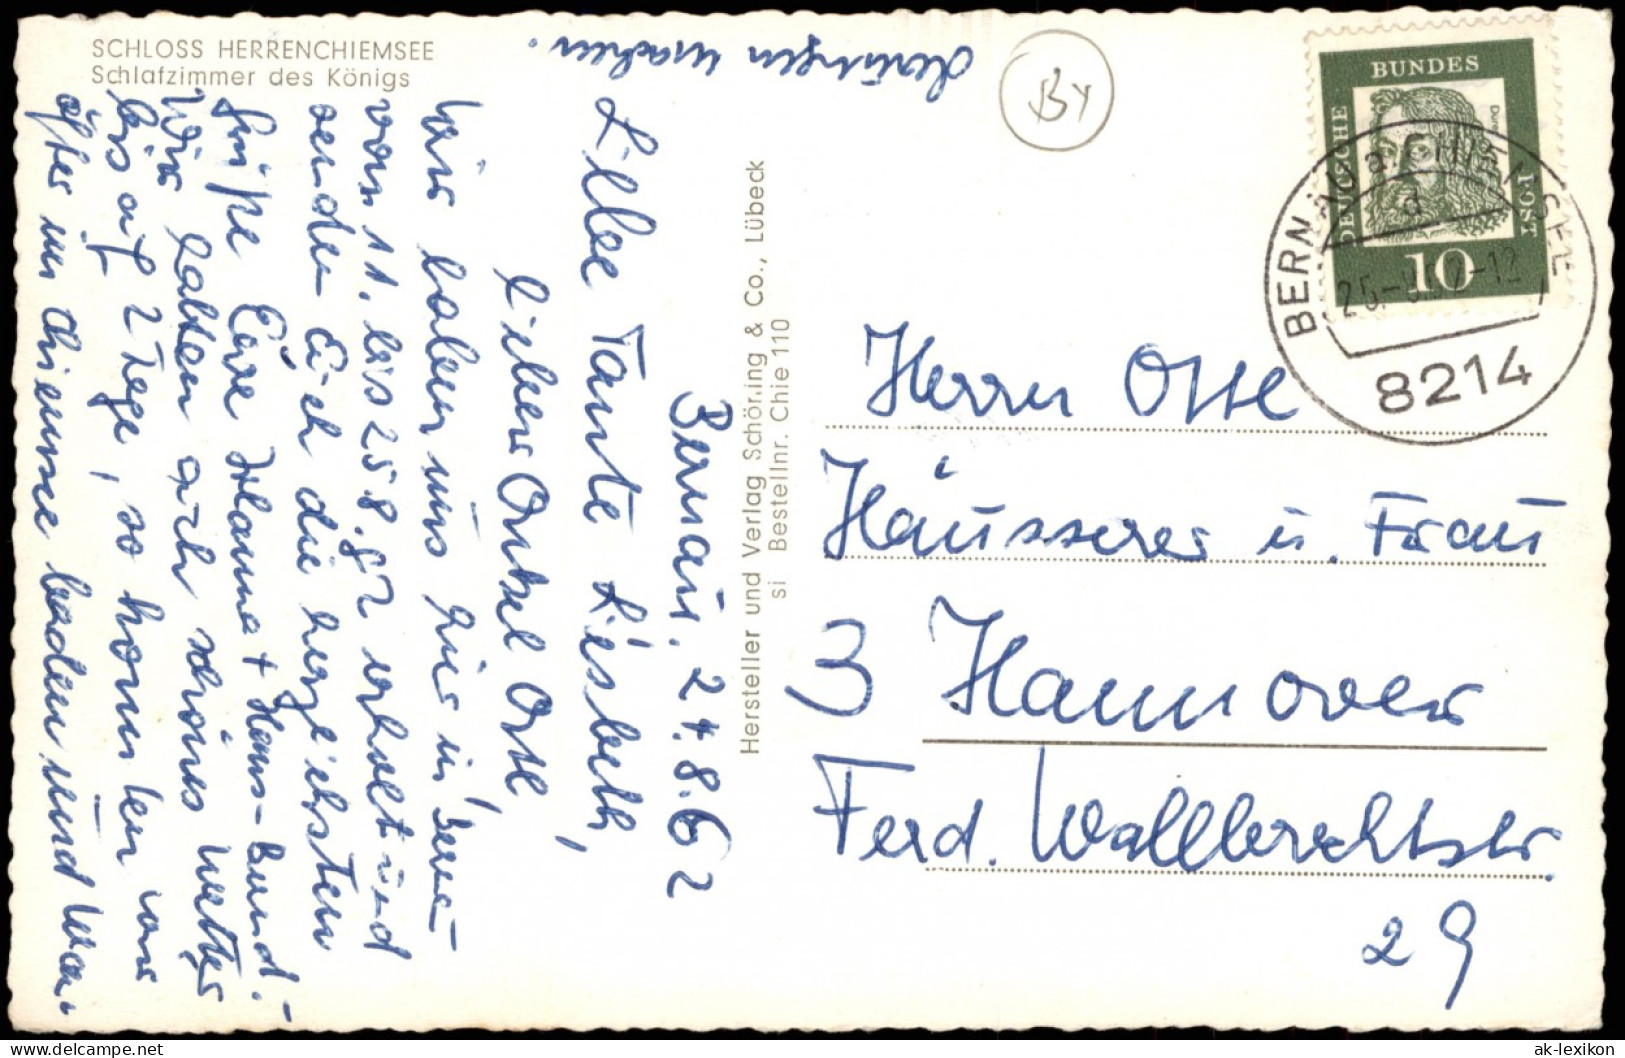 SCHLOSS HERRENCHIEMSEE
Schlafzimmer des Königs
Bernau, 24.8.62
Liebe Tante Liesbeth,
lieber Onkel Otto!
Wir haben uns hier in Bernau
vom 11. bis 25.8. gut erholt und
senden Euch die herzlichsten
Grüße Eure Hanna + Hans-Bernd.
Wir hatten auch schönes Wetter
bis auf 2 Tage, so konnten wir
öfter im Chiemsee baden und Wan-
derungen machen.
Hersteller und Verlag Schöning & Co., Lübeck
si Bestellnr. Chie 110
By
DEUTSCHE
BUNDES
POST
10
BERNAU a. CHIEMSEE
d
8214
Herrn Otto
Häusserer u. Frau
3 Hannover
Ferd. Wallbrechtstr.
29
ak-lexikon
delcampe.net